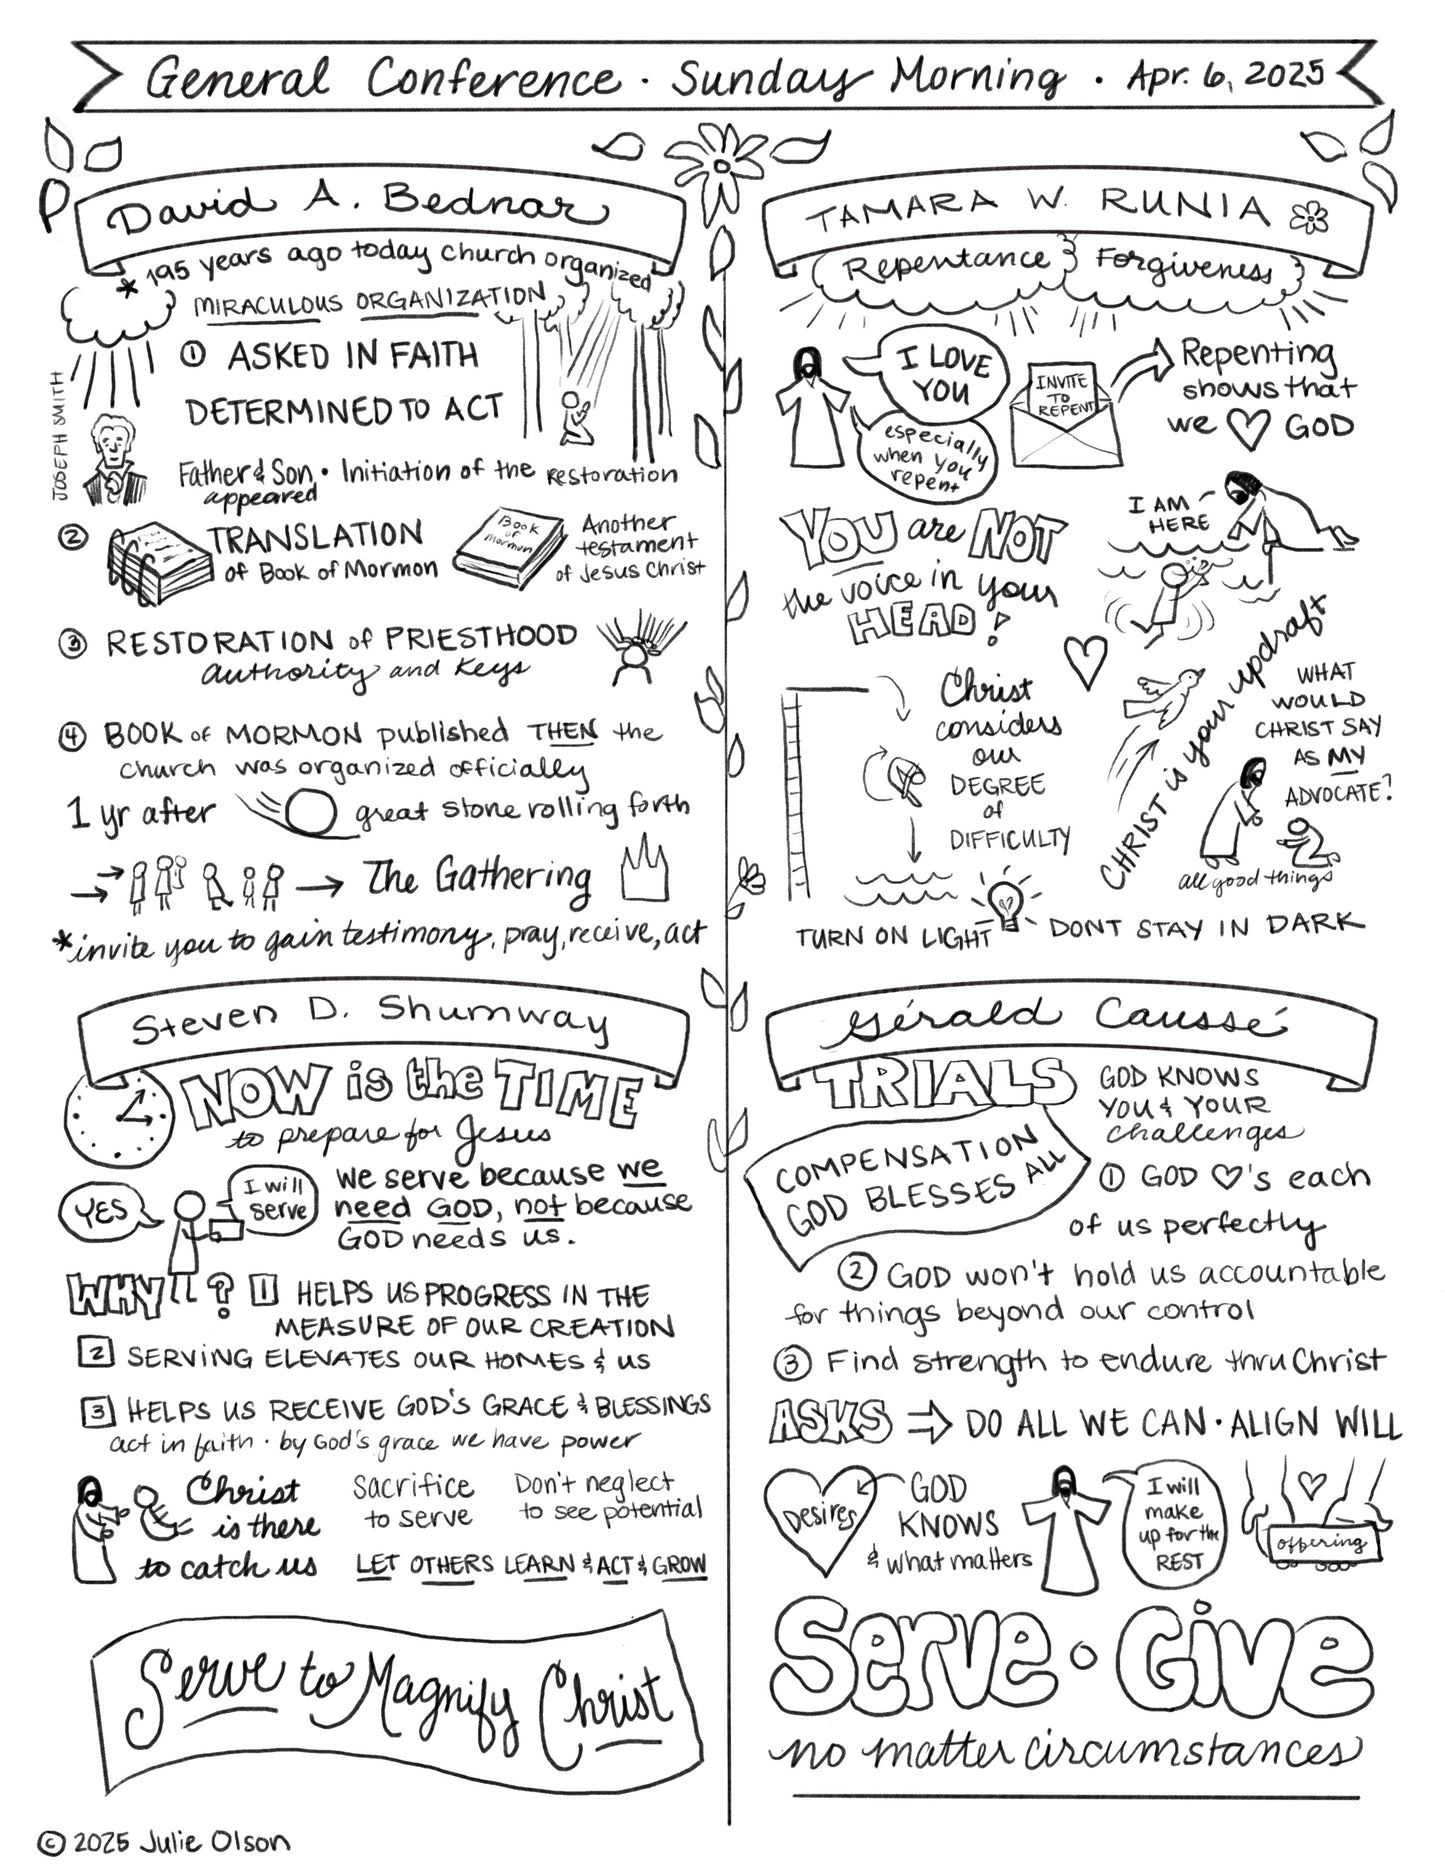 General Conference · Sunday Morning · Apr. 6, 2025
David A. Bednar
* 195 years ago today church organized
MIRACULOUS ORGANIZATION
① ASKED IN FAITH
DETERMINED TO ACT
JOSEPH SMITH
Father & Son · Initiation of the Restoration
appeared
② TRANSLATION
of Book of Mormon
Book
of
Mormon
Another
testament
of Jesus Christ
③ RESTORATION of PRIESTHOOD
authority and keys
④ BOOK of MORMON published THEN the
church was organized officially
1 yr after great stone rolling forth
The Gathering
*invite you to gain testimony, pray, receive, act
TAMARA W. RUNIA
Repentance & Forgiveness
I LOVE
YOU
especially
when you
repent
INVITE
TO
REPENT
Repenting
shows that
we ♡ GOD
I AM
HERE
YOU are NOT
the voice in your
HEAD!
Christ
considers
our
DEGREE
of
DIFFICULTY
CHRIST is your updraft
WHAT
WOULD
CHRIST SAY
AS MY
ADVOCATE?
all good things
TURN ON LIGHT DONT STAY IN DARK
Steven D. Shumway
NOW is the TIME
to prepare for Jesus
YES
I will
serve
we serve because we
need GOD, not because
GOD needs us.
WHY? 1 HELPS US PROGRESS IN THE
MEASURE OF OUR CREATION
2 SERVING ELEVATES OUR HOMES & US
3 HELPS US RECEIVE GOD'S GRACE & BLESSINGS
act in faith · by God's grace we have power
Christ
is there
to catch us
Sacrifice
to serve
Don't neglect
to see potential
LET OTHERS LEARN & ACT & GROW
Serve to Magnify Christ
Gérald Caussé
TRIALS
GOD KNOWS
YOU & YOUR
challenges
COMPENSATION
GOD BLESSES ALL
① GOD ♡'s each
of us perfectly
② GOD won't hold us accountable
for things beyond our control
③ Find strength to endure thru Christ
ASKS ⇒ DO ALL WE CAN · ALIGN WILL
Desires
GOD
KNOWS
& what matters
I will
make
up for the
REST
offering
Serve · Give
no matter circumstances
© 2025 Julie Olson